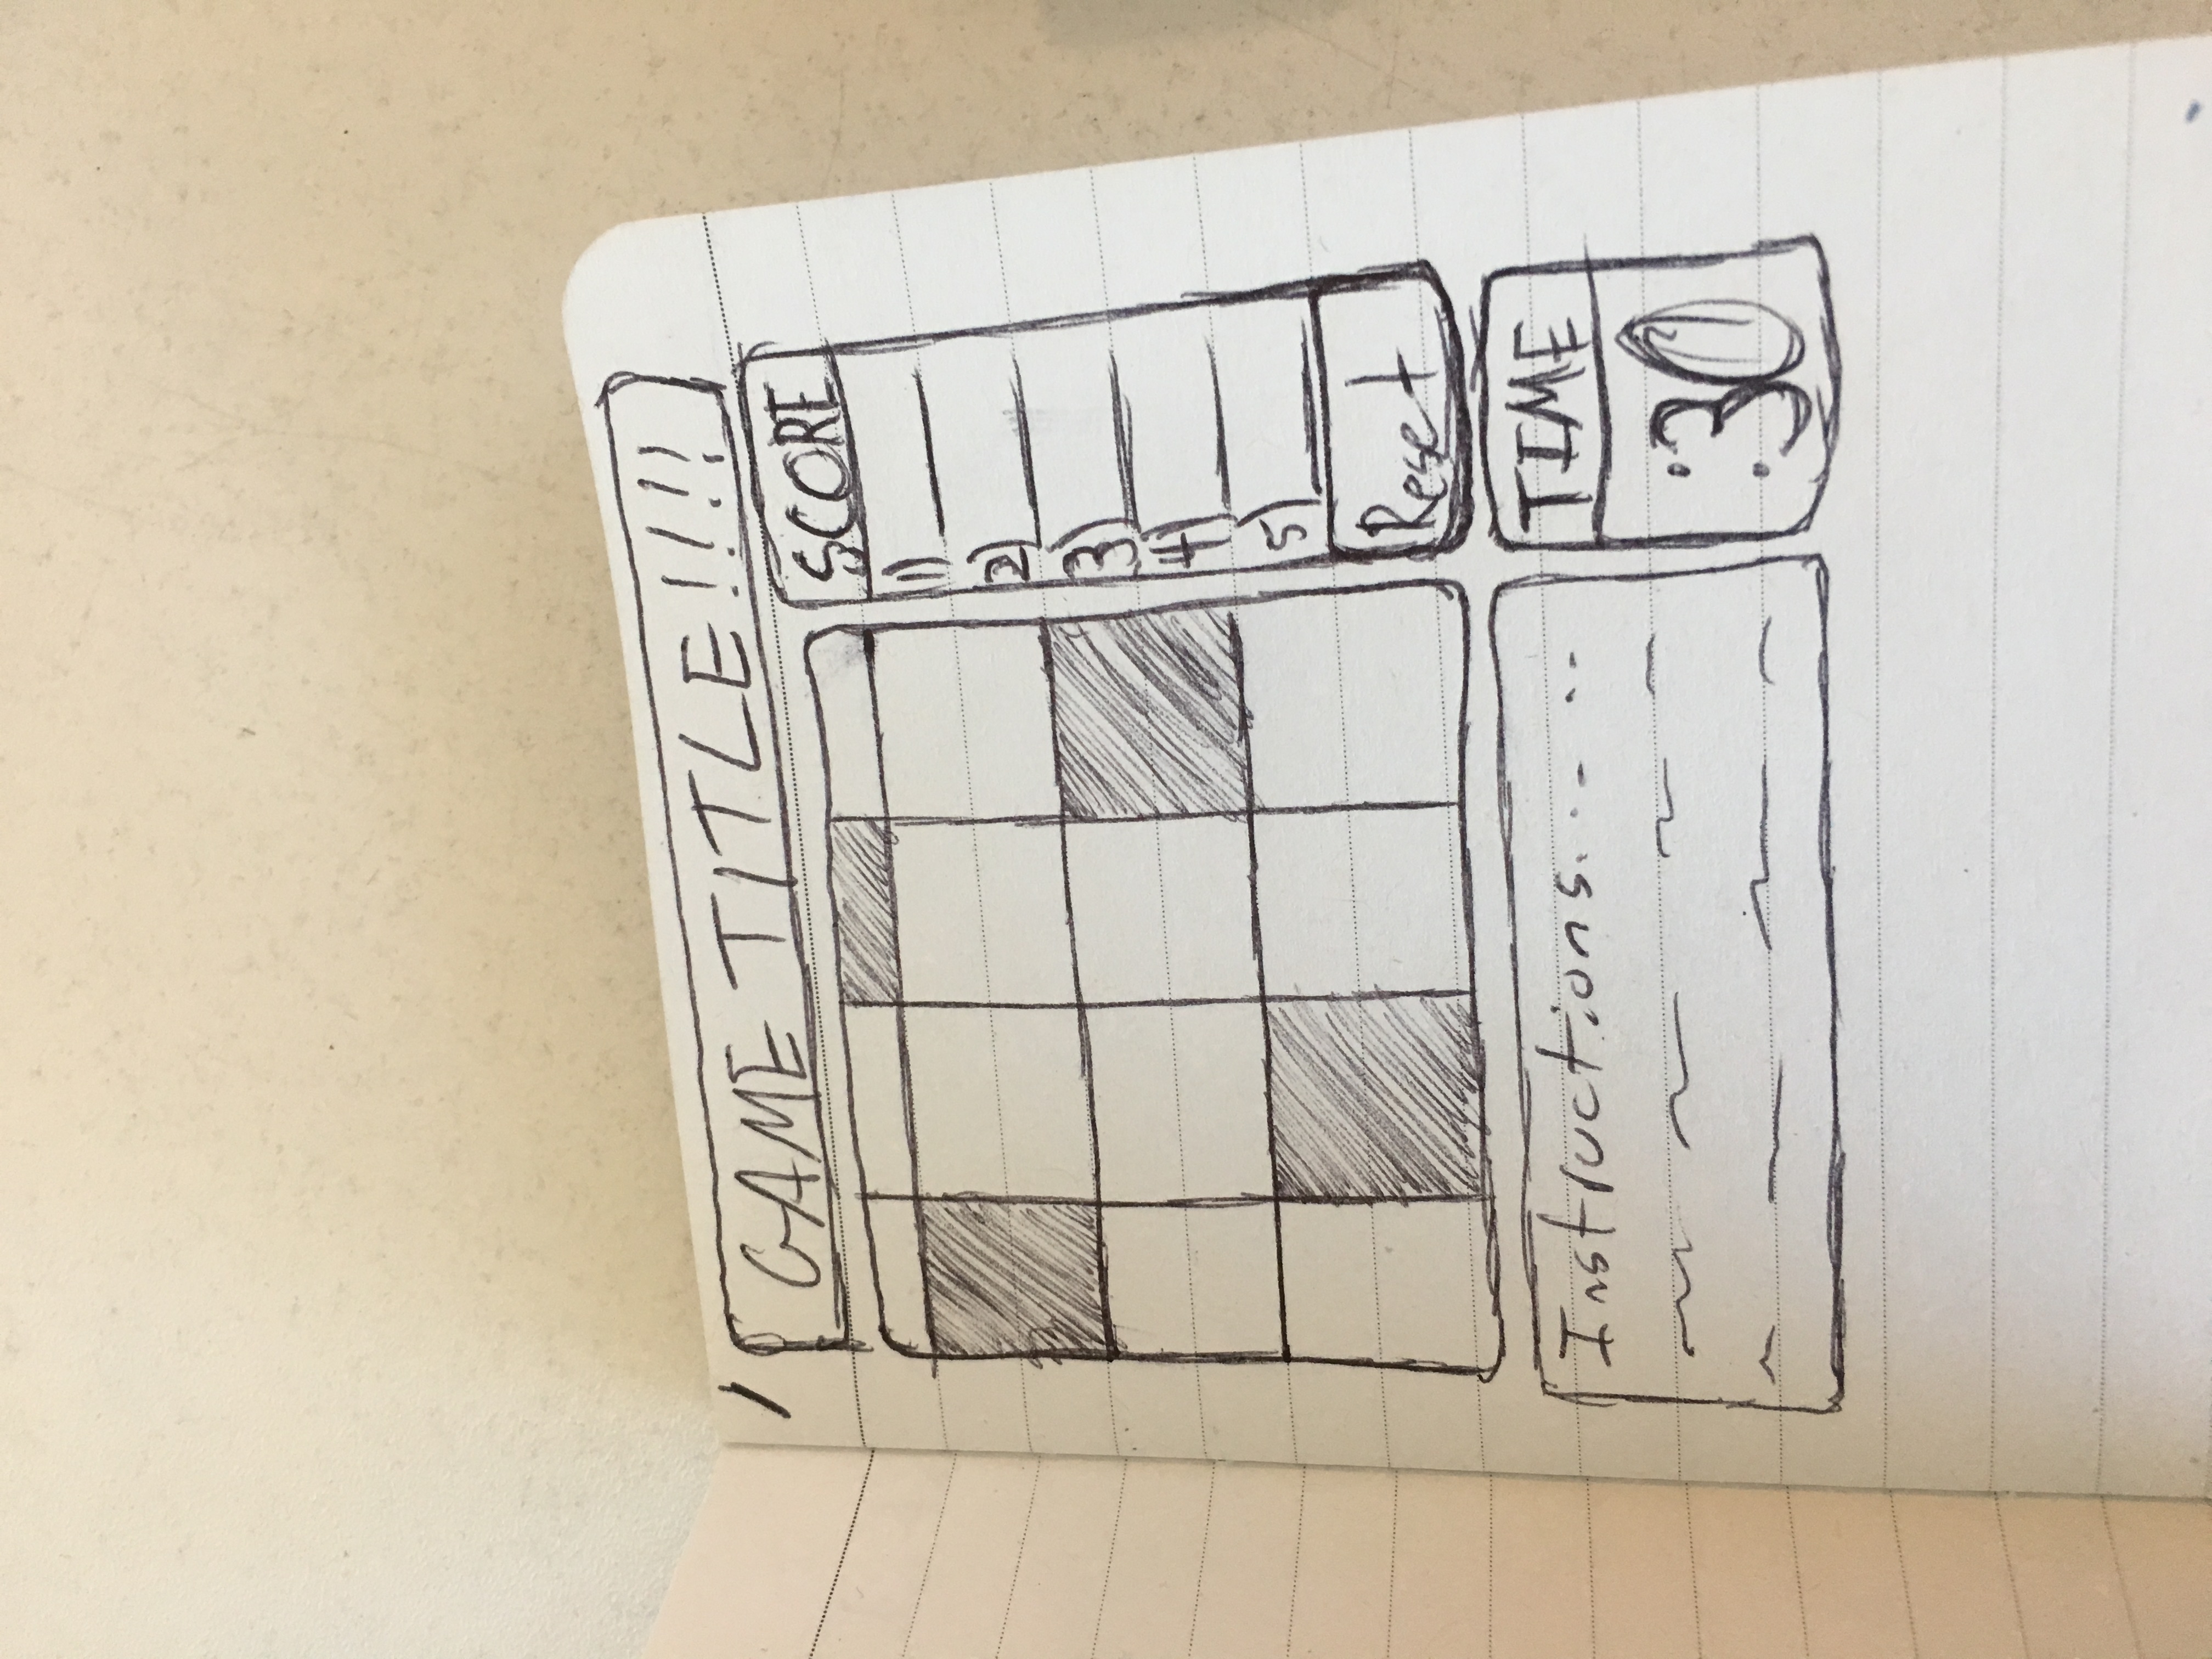 GAME TITLE!!!!
SCORE
1)
2)
3)
4)
5)
Reset
Instructions.... ..
TIME
:30